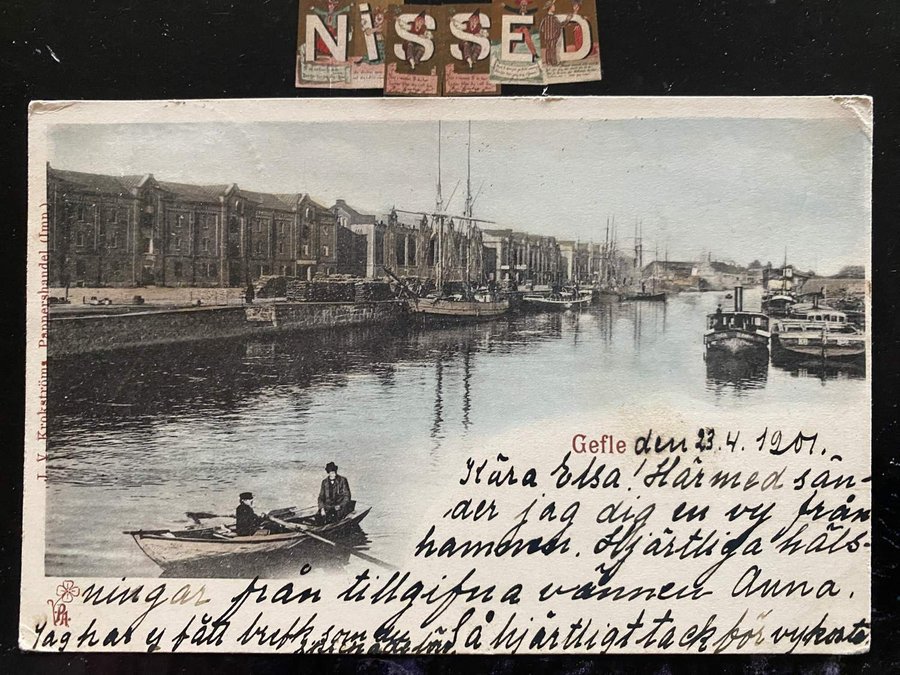 NISSED
J. V. Krokströms Pappershandel (Imp.)
Gefle den 23.4. 1901.
Kära Elsa! Härmed sän-
der jag dig en vy från
hamnen. Hjärtliga häls-
ningar från tillgifna vännen Anna.
Jag har ej fått som du Så hjärtligt tack för vykorte